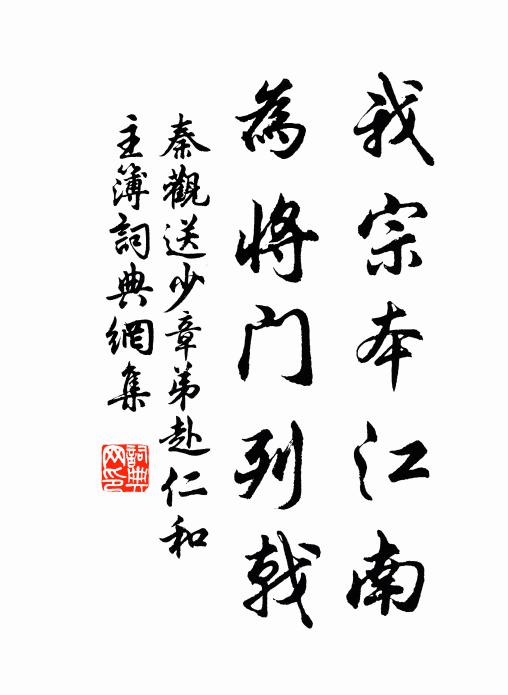 我宗本江南
為將門列戟
秦觀送少章弟赴仁和
主簿詞典網集
詞典網印